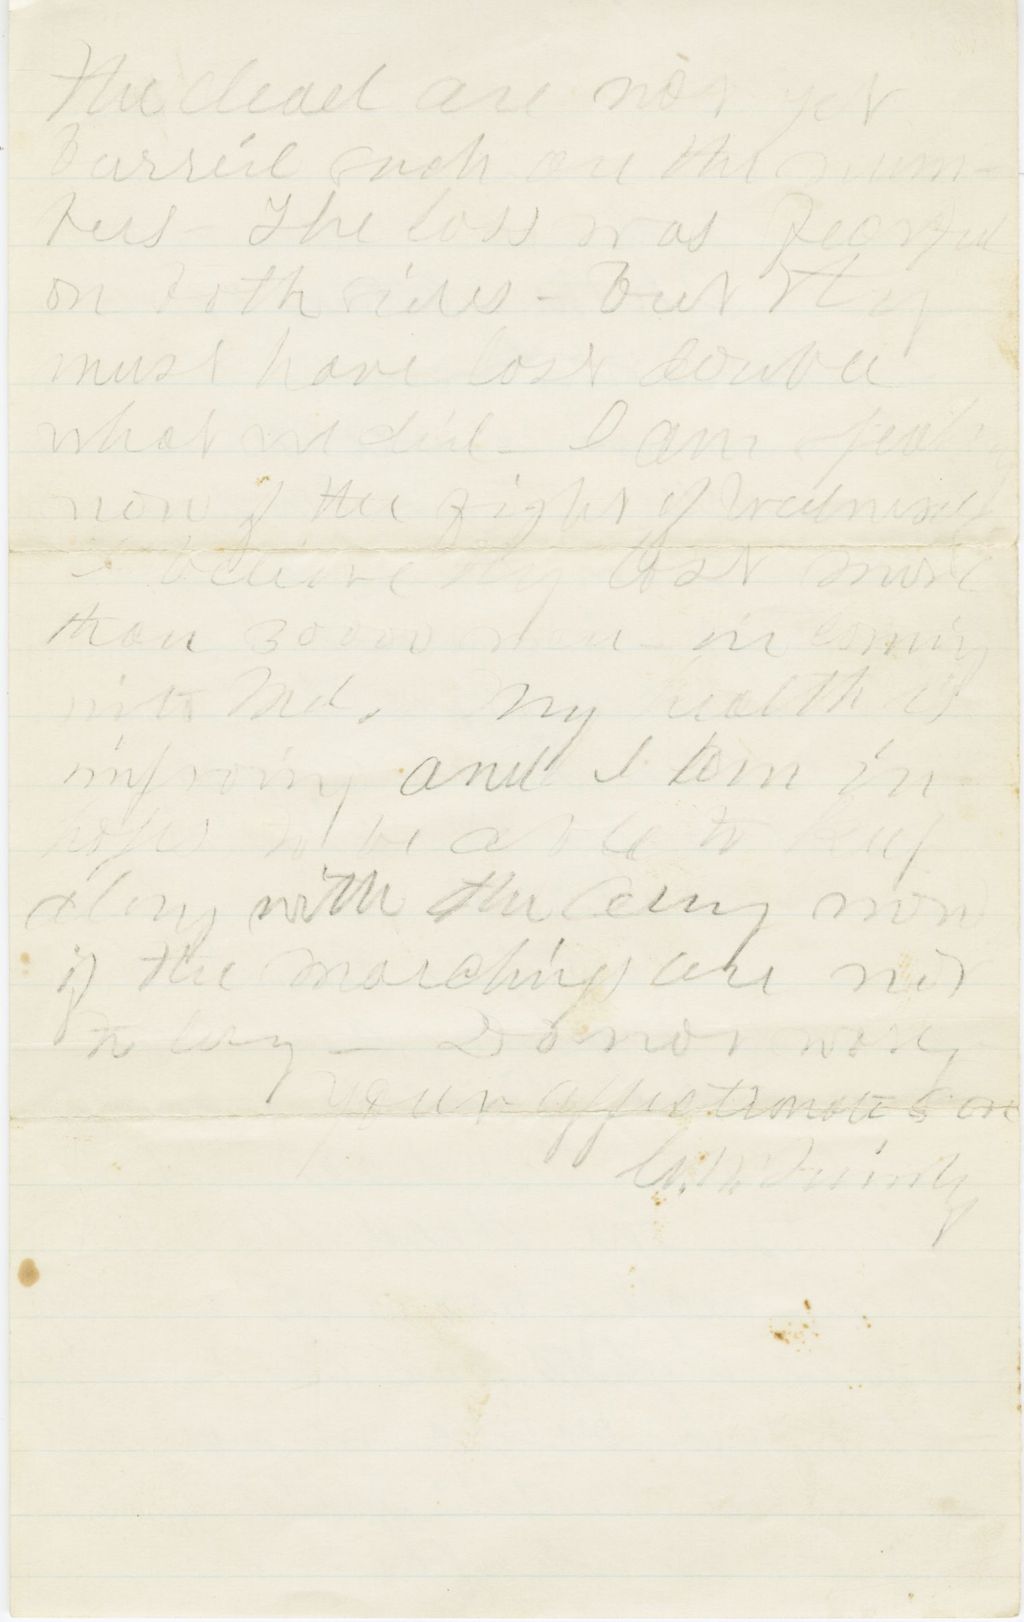 The dead are not yet
burried such are the num-
bers - The loss was fearful
on both sides - But they
must have lost double
what we did - I am speaking
now of the fight of Wednesd
I believe they lost more
than 30000 men - in coming
into Md. My health is
improving and I am in
hopes to be able to keep
along with the army now
if the marchings are not
to long - Do not worry
Your affectionate Son